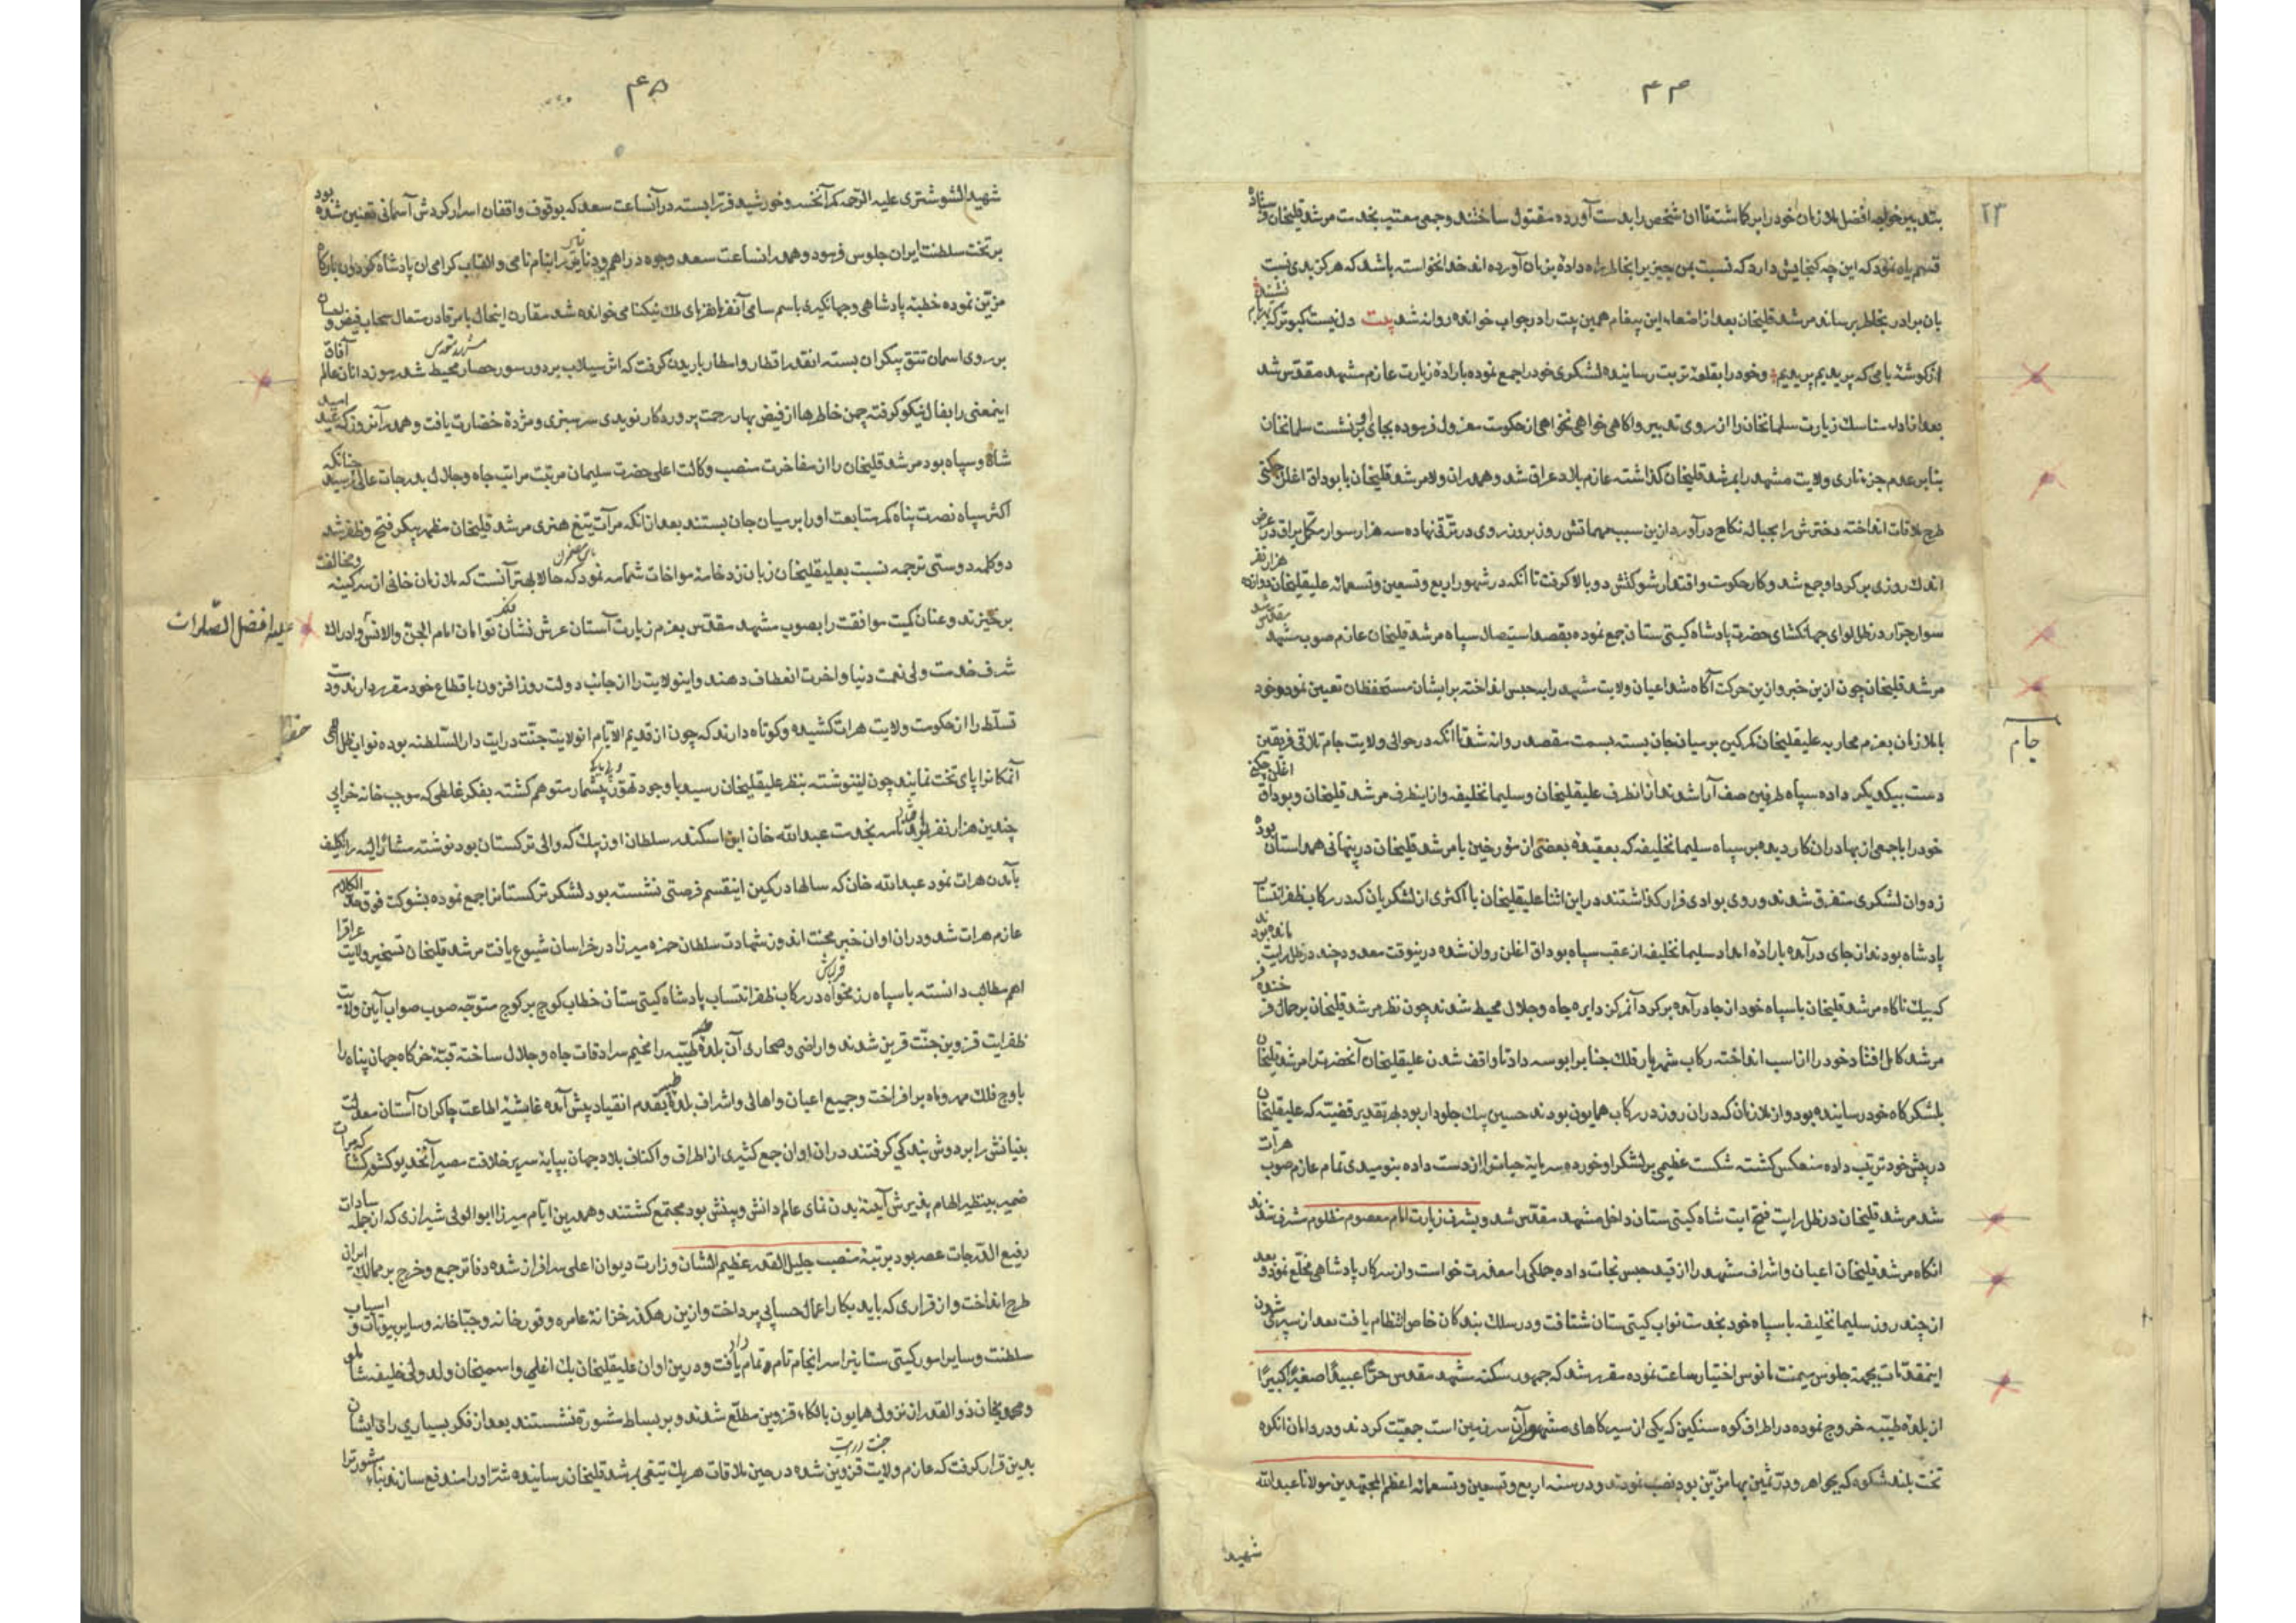 ۴۴
بتدبیر خواجه افضل ملازمان خود را برکاشته تا ان شخص را بدست آورده مقتول ساختند و جمعی معتبر بخدمت مرشد قلیخان فرستاده
قسم یاد نمود که این چه کنجایش دارد که نسبت بمن چیزی بخاطر راه داده بزبان آورده اند خدا نخواسته باشد که هرکز بدی نسبت
بان برادر بخاطر برساند مرشد قلیخان بعد از اصغاء این پیغام همین بیت را در جواب خوانده روانه شد بیت دل نیست کبوتر که
از کوشهٔ بامی که پریدیم پریدیم و خود را بقلعهٔ تربت رسانیده لشکری خود را جمع نموده بارادهٔ زیارت عازم مشهد مقدس شد
بعد از ادای مناسک زیارت سلمانخان را از روی تدبیر و اکاهی خواهی نخواهی از حکومت معزول فرموده بجای او بر نشست سلمانخان
بنابر عدم جز ناری ولایت مشهد را بمرشد قلیخان کذاشته عازم بلاد عراق شد و همدران ولا مرشد قلیخان با بوداق اغلن چکنی
طرح ملاقات انداخته دخترش را بحباله نکاح درآورد ازین سبب مهماتش روز بروز روی در ترقی نهاده سه هزار سوار مکمل یراق در عرض
اندک روزی برکرد او جمع شد و کار حکومت و اقتدار شوکتش دو بالا کرفت تا آنکه در شهور اربع و تسعین و تسعمائه علیقلیخان دوازده هزار نفر
سوار جرار در ظل لوای جهانکشای حضرت پادشاه کیتی ستان جمع نموده بقصد استیصال سپاه مرشد قلیخان عازم صوب مشهد مقدس شد
مرشد قلیخان چون ازین خبر و ازین حرکت آکاه شد اعیان ولایت مشهد را به حبس انداخته بر ایشان مستحفظان تعیین نمود و خود
با ملازمان بعزم محاربه علیقلیخان کمر کین بر میان جان بسته بسمت مقصد روانه شد تا آنکه در حوالی ولایت جام تلاقی فریقین
جام
دست بیکدیکر داده سپاه طرفین صف آرا شدند از انطرف علیقلیخان و سلیمانخلیفه و از اینطرف مرشد قلیخان و بوداق اغلن چکنی
خود را با جمعی از بهادران کار دیده بر سپاه سلیمانخلیفه که بعقیدهٔ بعضی از مورخین با مرشد قلیخان در پنهانی همداستان بود
زده وان لشکری متفرق شدند و روی بوادی فرار کذاشتند در این اثنا علیقلیخان با اکثری از لشکریان که در رکاب ظفر انتساب
پادشاه بودند از جای درآمده باراده امداد سلیمانخلیفه از عقب سپاه بوداق اغلن روان شده در ینوقت معدودی چند در ظل رایت مانده بود
که بیک ناکاه مرشد قلیخان با سپاه خود از جا درآمده برکرد آن مرکز دایره جاه و جلال محیط شدند چون نظر مرشد قلیخان بر جمال فرخنده
مرشد کامل افتاد خود را از اسب انداخته رکاب شهریار فلک جناب را بوسه داد تا واقف شدن علیقلیخان آنحضرت را مرشد قلیخان
بلشکرکاه خود رسانیده بود و از ملازمان که دران روز در رکاب همایون بودند حسین بیک جلودار بود بهر تقدیر قضیه که علیقلیخان
در پیش خود ترتیب داده منعکس کشته شکست عظیمی بر لشکر او خورده سرمایهٔ حیات را از دست داده بنومیدی تمام عازم صوب هرات
شد مرشد قلیخان در ظل رایت فتح ایت شاه کیتی ستان داخل مشهد مقدس شد و بشرف زیارت امام معصوم مظلوم مشرف شدند
انکاه مرشد قلیخان اعیان و اشراف مشهد را از قید حبس نجات داده جملکی را معذرت خواست و از سرکار پادشاهی مخلع نمود و بعد
از چند روز سلیمانخلیفه با سپاه خود بخدمت نواب کیتی ستان شتافت و در سلک بندکان خاص انتظام یافت بعد از سپری شدن
اینمقدمات بجهة جلوس میمنت مانوس اختیار ساعت نموده مقرر شد که جمهور سکنه مشهد مقدس حرا عبیدا صغیرا کبیرا
از بلدهٔ طیبه خروج نموده در اطراف کوه سنکین که یکی از سیرکاهای مشهور آن سرزمین است جمعیت کردند و در دامان انکوه
تخت بلند شکوه که بجواهر و در ثمین بها مزین بود نصب نمودند و در سنه اربع و تسعین و تسعمائه اعظم المجتهدین مولانا عبدالله
شهید
۴۵
شهید الشوشتری علیه الرحمه کمر آنخسرو خورشید فر را بسته در آنساعت سعد که بوقوف واقفان اسرار کردش آسمانی تعیین شده بود
بر تخت سلطنت ایران جلوس فرمود و همدرانساعت سعد وجوه دراهم و دنانیر را بنام نامی و القاب کرامی ان پادشاه کردون بارکاه
مزین نموده خطبهٔ پادشاهی و جهانکیری باسم سامی آنفرمانفرمای ملک نیکنامی خوانده شد مقارن اینحال بامر قادر متعال سحاب فیض
بر روی اسمان تتق پیکران بسته انقدر اقطار و امطار باریدن کرفت که اش سیلاب بر دور سور حصار محیط شد رموزدانان عالم آفاق
اینمعنی را بفال نیکو کرفته چمن خاطرها از فیض بهار رحمت پروردکار نویدی سرسبزی و مژدهٔ خضارت یافت و همدر آنروز که عید امید
شاه و سپاه بود مرشد قلیخان را از مفاخرت منصب وکالت اعلی حضرت سلیمان مرتبت مراتب جاه و جلال بدرجات عالی رسید چنانکه
اکثر سپاه نصرت پناه کمر متابعت او را بر میان جان بستند بعد از انکه مرآت تیغ هنری مرشد قلیخان مظهر پیکر فتح و ظفر شد
دو کلمه دوستی ترجمه نسبت بعلیقلیخان زبان زد خامهٔ مواخات شمامه نمود که حالا بهتر آنست که ملازمان خانی از سر کینه و مخالفت
برخیزند و عنان کمیت موافقت را بصوب مشهد مقدس بعزم زیارت آستان عرش نشان امام الجن والانس و ادراک
علیه افضل الصلوات
شرف خدمت ولی نعمت دنیا و اخرت انعطاف دهند و اینولایت را از جانب دولت روز افزون باقطاع خود مقرر دارند و دست
تسلط را از حکومت ولایت هرات کشیده و کوتاه دارند که چون از قدیم الایام انولایت جنت درایت دار السلطنه بوده نواب ظل الهی
آنمکانرا پای تخت نمایند چون اینوشته بنظر علیقلیخان رسید با وجود تهور بیشمار متوهم کشته بفکر غلطی که موجب خانه خرابی
چندین هزار نفر شد نامه بخدمت عبدالله خان ابن اسکندر سلطان اوزبک که والی ترکستان بود نوشته مشار الیه را تکلیف
بآمدن هرات نمود عبدالله خان که سالها در کمین اینقسم فرصتی نشسته بود لشکر ترکستانرا جمع نموده بشوکت فوق الکلام
عازم هرات شد و دران اوان خبر محنت اندوز شهادت سلطان حمزه میرزا در خراسان شیوع یافت مرشد قلیخان تسخیر ولایت عراقرا
اهم مطالب دانسته با سپاه رزمخواه قزلباش در رکاب ظفر انتساب پادشاه کیتی ستان خطاب کوچ بر کوچ متوجه صوب صواب آیین ولایت
ظفر ایت قزوین جنت قرین شدند و اراضی و صحاری آن بلدهٔ طیبه را مخیم سرادقات جاه و جلال ساخته قبهٔ خرکاه جهان پناه را
باوج فلک مهر و ماه برافراخت و جمیع اعیان و اهالی و اشراف بلده بقدم انقیاد پیش آمده غاشیهٔ اطاعت چاکران آستان معدلت
بنیانش را بر دوش بندکی کرفتند دران اوان جمع کثیری از اطراف و اکناف بلاد جهان بپایهٔ سریر خلافت مصیر آنخدیو کشورکشا که مرآت
ضمیر بینظیر الهام پذیرش آیینهٔ بدن نمای عالم دانش و بینش بود مجتمع کشتند و همدرین ایام میرزا ابوالولی شیرازی که از جمله سادات
رفیع الدرجات عصر بود برتبهٔ منصب جلیل القدر عظیم الشان وزارت دیوان اعلی سرافراز شده دفاتر جمع و خرج بر ممالک ایران
طرح انداخت و از قراری که باید بکار اعمال حسابی پرداخت و ازین رهکذر خزانهٔ عامره و قورخانه و جباخانه و سایر بیوتات و اسباب
سلطنت و سایر امور کیتی ستانیرا سرانجام تام و تمام داد و درین اوان علیقلیخان بک اغلی و اسمیخان ولد ولی خلیفه شاملو
و محمدیخان ذوالقدر از نزول همایون بالکاء قزوین مطلع شدند و بر بساط مشورة نشستند بعد از فکر بسیاری رای ایشان
بدین قرار کرفت که عازم ولایت قزوین شده در حین ملاقات هر یک تیغی بمرشد قلیخان رسانیده شر او را مندفع سازند بناء